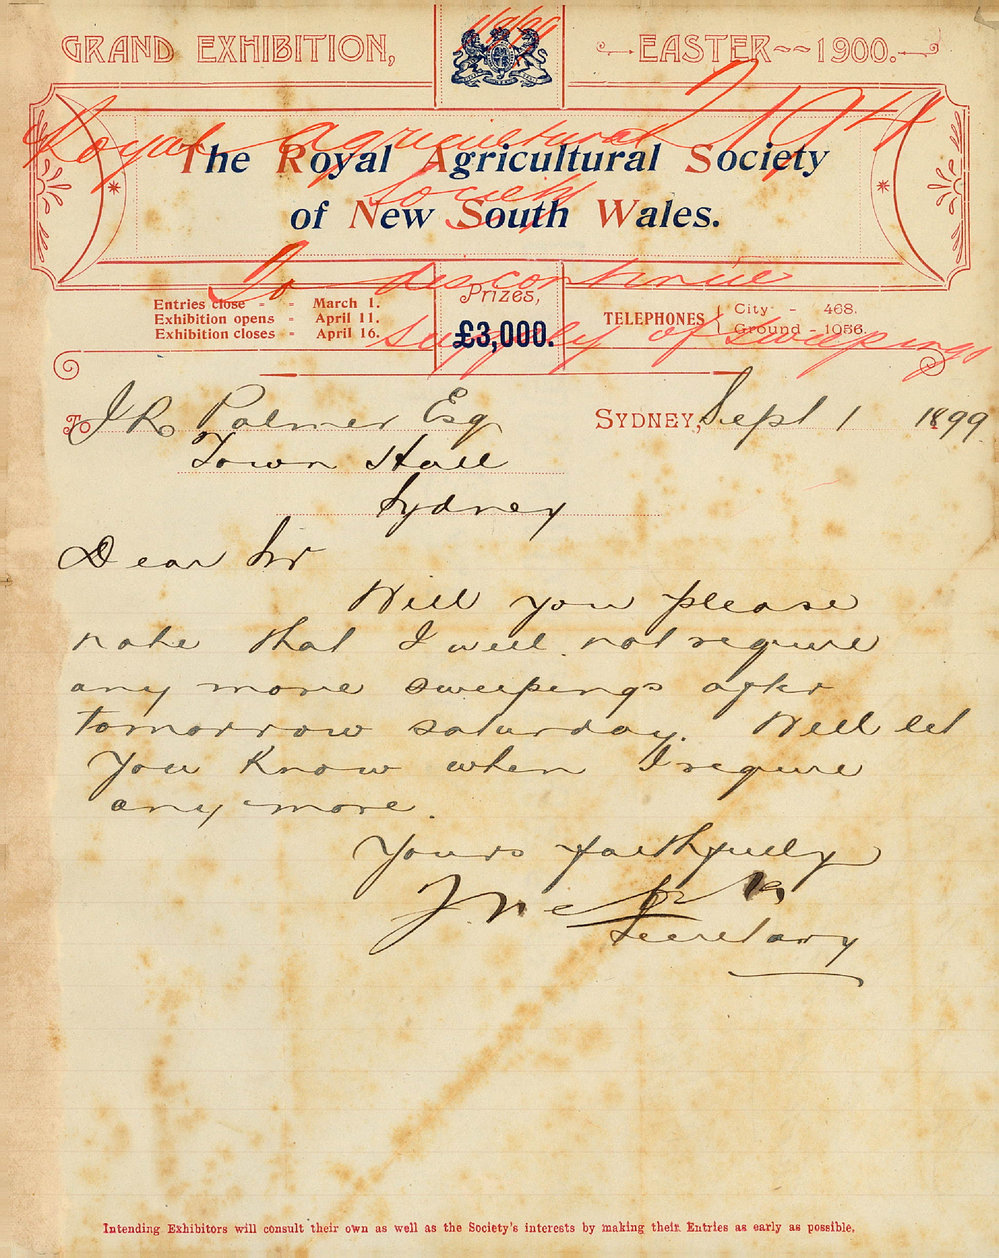 GRAND EXHIBITION,
EASTER~~1900.
The Royal Agricultural Society
of New South Wales.
Royal Agricultural
Society
To discontinue
supply of sweepings
Entries close - - March 1.
Exhibition opens - April 11.
Exhibition closes - April 16.
Prizes,
£3,000.
TELEPHONES
City - 468.
Ground - 1056.
To J R Palmer Esq
SYDNEY, Sept 1 1899
Town Hall
Sydney
Dear Sir
Will you please
note that I will not require
any more sweepings after
tomorrow saturday. Will let
you know when I require
any more.
Yours faithfully
Secretary
Intending Exhibitors will consult their own as well as the Society's interests by making their Entries as early as possible.